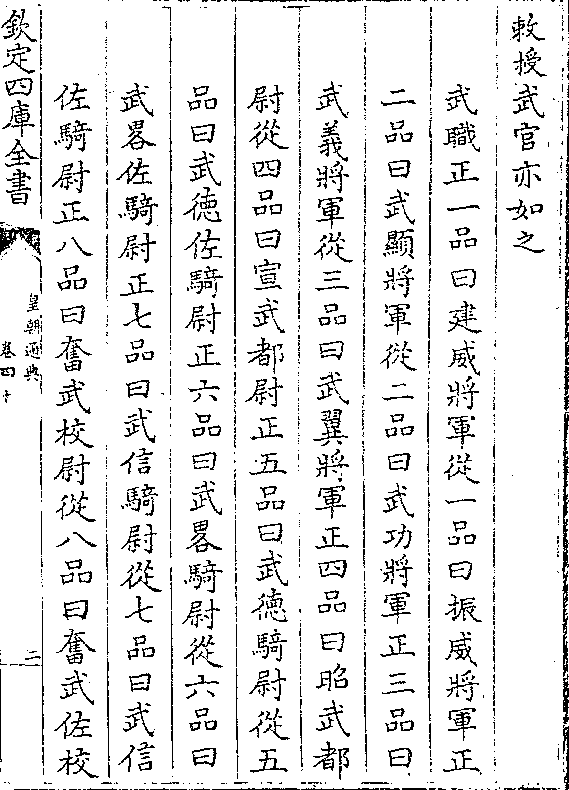 敕授武官亦如之
武職正一品曰建威將軍從一品曰振威將軍正
二品曰武顯將軍從二品曰武功將軍正三品曰
武義將軍從三品曰武翼將軍正四品曰昭武都
尉從四品曰宣武都尉正五品曰武德騎尉從五
品曰武德佐騎尉正六品曰武畧騎尉從六品曰
武畧佐騎尉正七品曰武信騎尉從七品曰武信
佐騎尉正八品曰奮武校尉從八品曰奮武佐校
欽定四庫全書
皇朝通典
卷四十
二